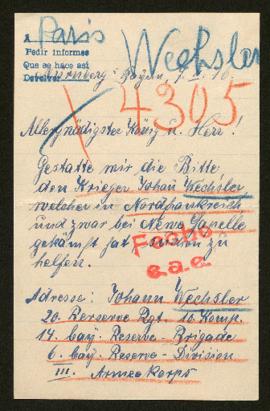 A Paris
Pedir informes
Que se hace asi
Devolver
Wechsler
4305
Allergnädigster König u. Herr!
Gestatte mir die Bitte,
den Krieger Johann Wechsler
welcher in Nordfrankreich
und zwar bei Neuve Chapelle
gekämpft hat, suchen zu
helfen.
Fecho
e.a.e.
Adresse: Johann Wechsler
20. Reserve Rgt. 10 Komp.
14. bay. Reserve-Brigade
6. bay. Reserve-Division
III. Armeekorps